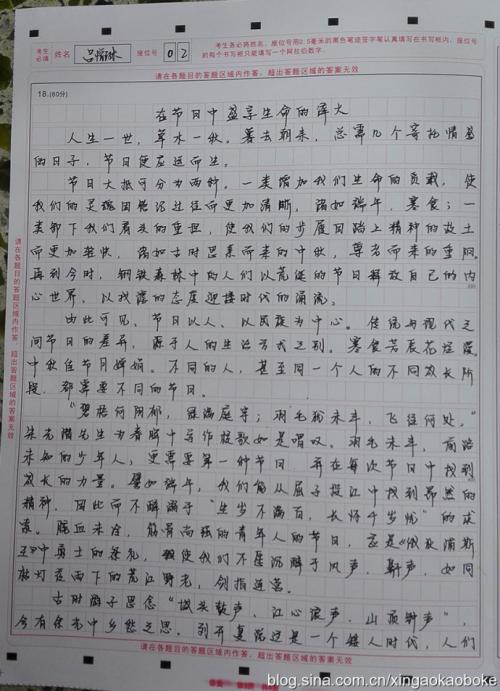 考生必填
姓名
座位号
0 2
考生务必将姓名、座位号用0.5毫米的黑色笔迹签字笔认真填写在书写框内，座位号
的每个书写框只能填写一个阿拉伯数字。
请在各题目的答题区域内作答，超出答题区域的答案无效
18.(60分)
在节日中盛享生命的厚大
人生一世，草木一秋。暑去朝来，总需几个寄托情感
的日子，节日便应运而生。
节日大抵可分为两种。一类增加我们生命的负载，使
我们的灵魂因铭记过往而更加清晰，诸如端午、寒食；一
类卸下我们肩头的重担，使我们的步履因踏上精神的故土
而更加轻快，诸如古时思亲而来的中秋，尊老而来的重阳。
再到今时，钢铁森林中的人们以荒诞的节日释放自己的内
心世界，以戏谑的态度迎接时代的涌流。
由此可见，节日以人、以民族为中心。传统与现代之
间节日的差异，源于人的生活方式之别。寒食苦辰花
中秋佳节月婵娟。不同的人，甚至同一个人的不同成长阶
段，都需要不同的节日。
“碧梧何阴郁，绿满庭宇；羽毛犹未丰，飞往何处。”
朱光潜先生为青年中写作放歌如是唱叹。羽毛未丰，前路
未知的少年人，更需要某一种节日，并在每次节日中找到
成长的力量。譬如端午，我们能从屈子投江中找到昂然的
精神，因此而不解满于“生年不满百，长怀千岁忧”的
青年人的节日，
勇士的祭礼，我使我们不愿沉醉于风声、鼾声，如同
夜雨下的荒江野老，剑指
古时游子思念“城头鼓声，江心浪声，山顶钟声”，
今有余光中乡愁之思。别开复说这是一个矮人时代，人们
请在各题目的答题区域内作答，超出答题区域的答案无效
请在各题目的答题区域内作答，超出答题区域的答案无效
blog.sina.com.cn/xingaokaoboke